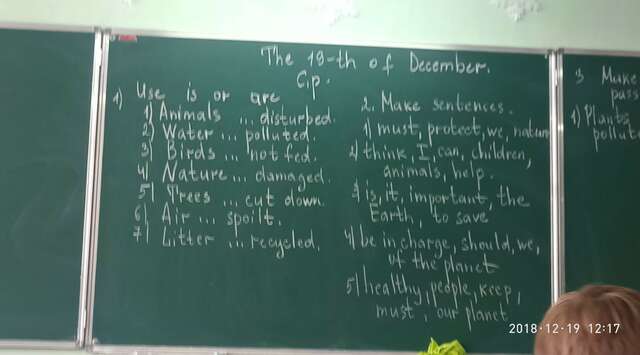 The 19-th of December.
C.p.
1) Use is or are
1) Animals ... disturbed.
2) Water ... polluted
3) Birds ... not fed.
4) Nature ... damaged.
5) Trees ... cut down.
6) Air ... spoilt.
7) Litter ... recycled.
2. Make sentences.
1) must, protect, we, nature
2) think, I, can, children,
animals, help.
3) is, it, important, the
Earth, to save
4) be in charge, should, we,
of the planet
5) healthy, people, keep,
must, our planet
3 Make
pass
1) Plants
pollut
2018-12-19 12:17